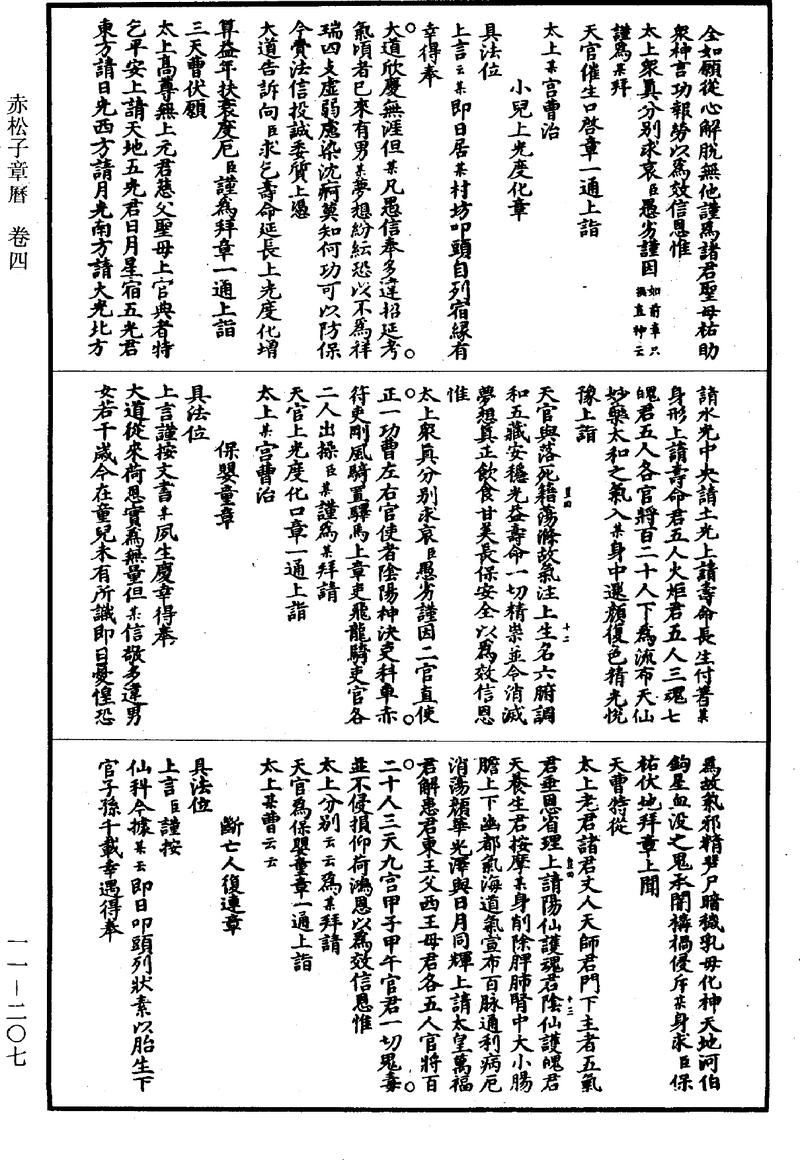 赤松子章曆　卷四
全如願從心解脫無他謹爲諸君聖母祐助
衆神言功報勞以爲效信恩惟
太上衆眞分別求哀臣愚劣謹因如前章只操直神云
謹爲某拜
天官催生口啓章一通上詣
太上某宮曹治
小兒上光度化章
具法位
上言云某即日居某村坊叩頭自列宿緣有
幸得奉
大道欣慶無涯但某凡愚信奉多違招延考
氣頃者已來有男某夢想紛紜恐以不爲祥
瑞四支虛弱慮染沈痾莫知何功可以防保
今賫法信投誠委質上憑
大道告訴向臣求乞壽命延長上光度化增
算益年扶衰度厄臣謹爲拜章一通上詣
三天曹伏願
太上高尊無上元君慈父聖母上官典者特
乞平安上請天地五光君日月星宿五光君
東方請日光西方請月光南方請火光北方
請水光中央請土光上請壽命長生付著某
身形上請壽命君五人火炬君五人三魂七
魄君五人各官將百二十人下爲流布天仙
妙藥太和之氣入某身中還顏復色精光悅
豫上詣
天官與落死籍蕩滌故氣注上生名六腑調
和五藏安穩光益壽命一切精祟並令消滅
夢想眞正飲食甘美長保安全以爲效信恩
惟
太上衆眞分別求哀臣愚劣謹因二官直使
正一功曹左右官使者陰陽神決吏科車赤
符吏剛風騎置驛馬上章吏飛龍騎吏官各
二人出操臣某謹爲某拜請
天官上光度化口章一通上詣
太上某宮曹治
保嬰童章
具法位
上言謹按文書某夙生慶幸得奉
大道從來荷恩實爲無量但某信敬多違男
女若干歲今在童兒未有所識即日憂惶恐
爲故氣邪精斃尸暗穢乳母化神天地河伯
鉤星血没之鬼承閒構禍侵斥某身求臣保
祐伏地拜章上聞
天曹特從
太上老君諸君丈人天師君門下主者五氣
君垂恩省理上請陽仙護魂君陰仙護魄君
天養生君按摩某身削除脾肺腎中大小腸
膽上下幽都氣海道氣宣布百脉通利病厄
消蕩顏華光澤與日月同輝上請太皇萬福
君解患君東王父西王母君各五人官將百
二十人三天九宮甲子甲午官君一切鬼毒
並不侵損仰荷鴻恩以爲效信恩惟
太上分別云云爲某拜請
天官爲保嬰童章一通上詣
太上某曹云云
斷亡人復連章
具法位
上言臣謹按
仙科今據某云即日叩頭列狀素以胎生下
官子孫千載幸遇得奉
一一—二〇七